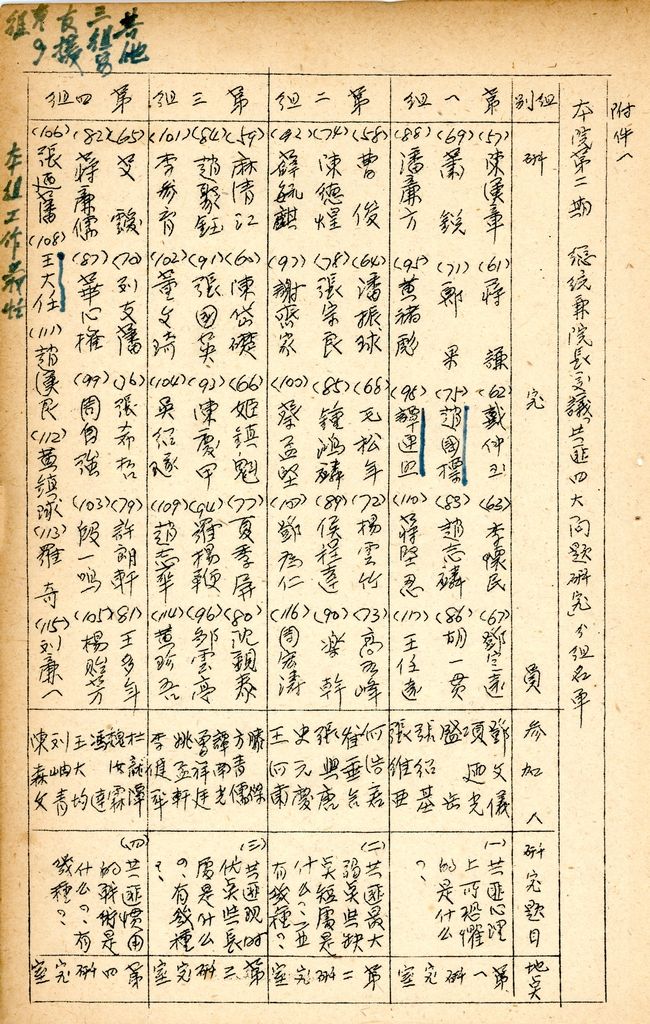 附件一
本院第二期 總統兼院長交議「共匪四大問題研究」分組名單
組別
研究員
參加人
研究題目
地點
第一組
(57)陳漢華 (61)蔣謙 (62)戴仲玉 (63)李懷民 (67)鄧定遠
(69)蕭銳 (71)鄭果 (75)趙國標 (83)趙志麟 (86)胡一貫
(88)潘廉方 (95)黃緒彪 (110)蔣堅忍 (117)王任遠
鄧文儀
項迺光
盛岳
張紹基
張維亞
(一)共匪心理
上所恐懼
的是什么
?
第一研究室
第二組
(58)曹俊 (64)潘振球 (68)毛松年 (72)楊雲竹 (73)高
(74)陳德煌 (78)張宗良 (85)鍾鴻麟 (89)侯程達 (90)梁幹
(92)薛毓麒 (97)謝齊家 (100)蔡孟堅 (107)鄧為仁 (116)周宏濤
何浩若
崔垂言
張興唐
史元慶
王河南
(二)共匪最大
弱點些缺
點短處是
什么?並
有幾種?
第二研究室
第三組
(59)麻清江 (60)陳岱礎 (66)姬鎮魁 (77)夏季屏 (80)沈覲泰
(84)趙聚鈺 (91)張國英 (93)陳慶甲 (94)羅揚鞭 (96)鄒雲亭
(101)李參育 (102)董文琦 (104)吳紹璲 (109)趙志華 (114)黃珍吾
滕傑
方青儒
曾祥廷
姚孟軒
李健華
(三)共匪現時
優點些長
處是什么
?有幾種
?
第三研究室
第四組
(65)艾靉 (70)刘支藩 (76)張希哲 (79)許朗軒 (81)王多年
(82)蔣廉儒 (87)華心權 (99)周自強 (103)段一鳴 (105)楊貽芳
(106)張迺藩 (108)王大任 (111)趙漢良 (112)黃鎮球 (113)羅奇 (115)刘廉一
魏汝霖
馮達
王大均
刘岫青
陳森文
(四)共匪慣用
的戰術是
什么?有
幾種?
第四研究室
其他
三組另
友援
本組工作最忙